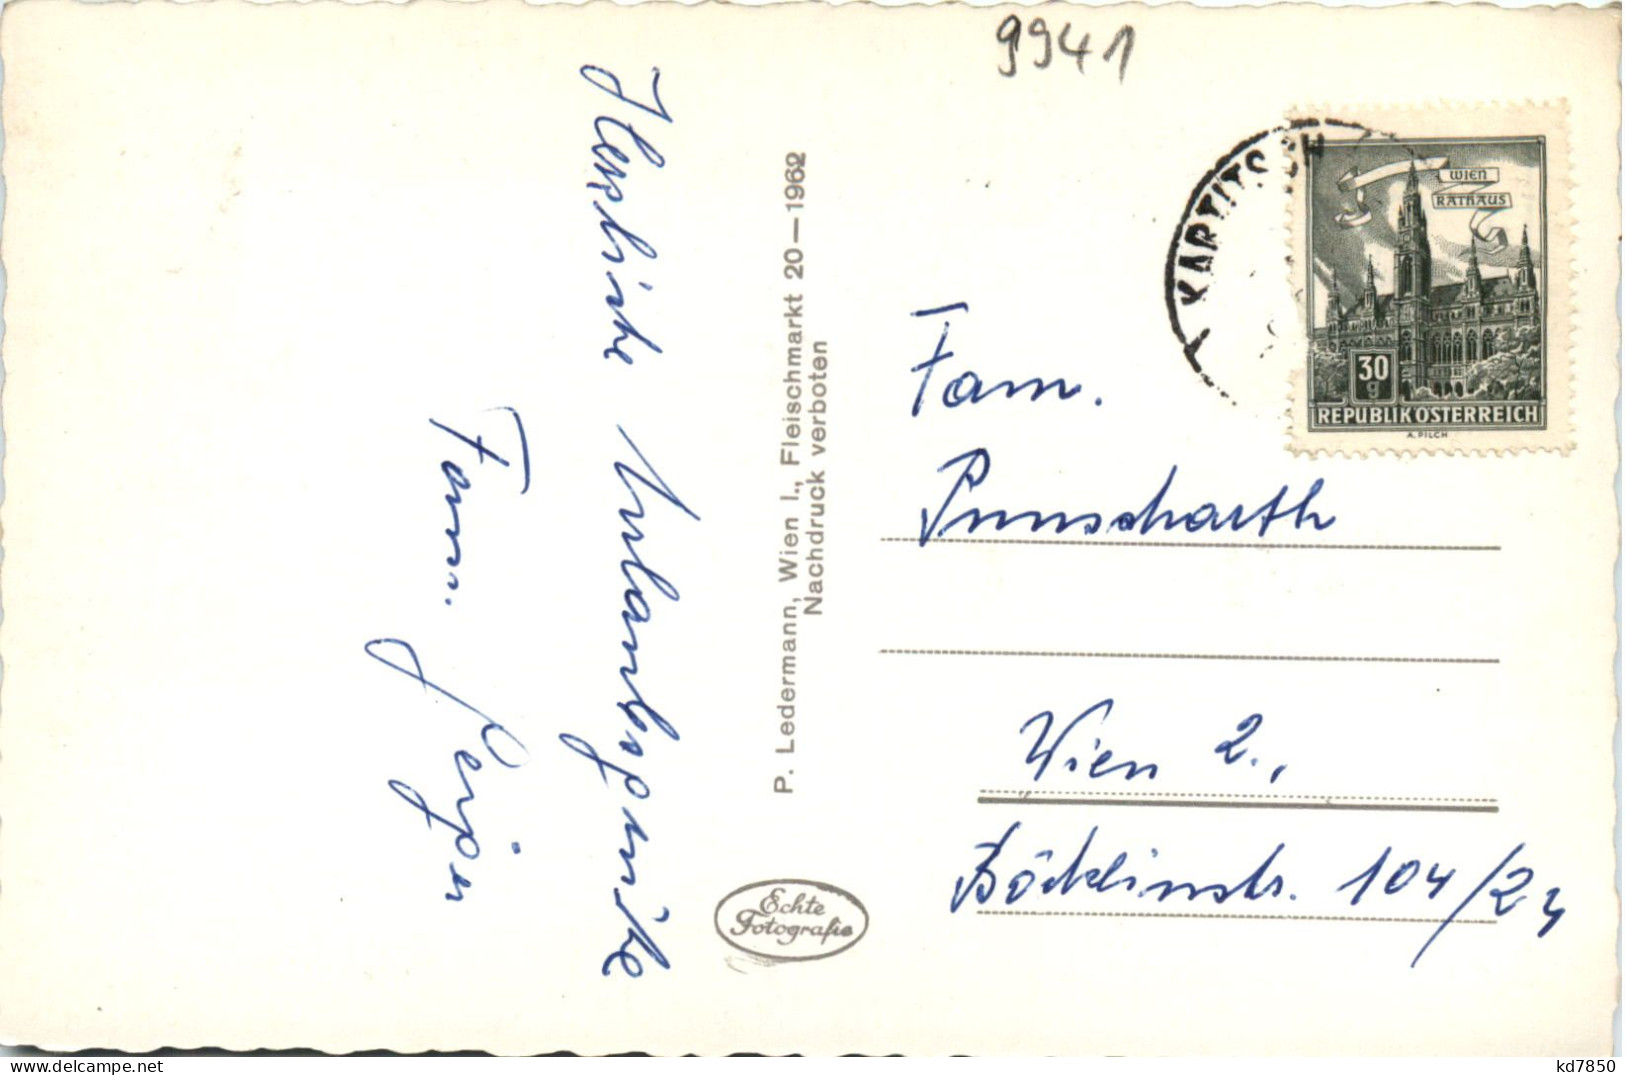 9941
KARTITSCH
WIEN
RATHAUS
30
g
REPUBLIK ÖSTERREICH
A. PILCH
Herzliche Urlaubsgrüße
Fam.
P. Ledermann, Wien I., Fleischmarkt 20—1962
Nachdruck verboten
Echte
Fotografie
Fam.
Punscharth
Wien 2.,
Böcklinstr. 104/24
kd7850